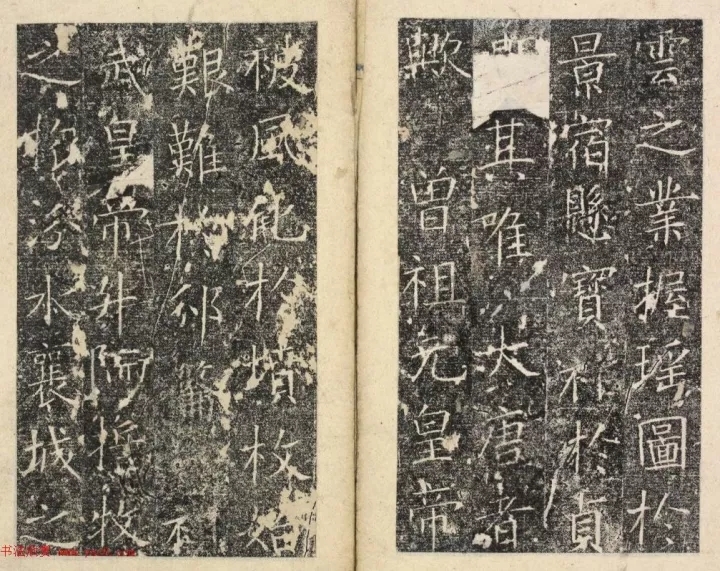 雲之業握瑶圖於
景宿懸寶祚於貞
其唯大唐者
歟 曾祖元皇帝
被風化於墳枚始
艱難於邠
武皇帝升陑指牧
之 水襄城之
书法欣赏 www.yac8.com